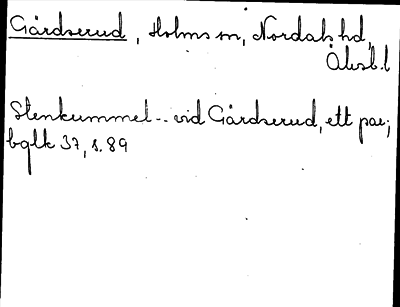 Gårdserud, Holms sn, Nordals hd,
Älvsb.l
Stenkummel -- vid Gårdserud, ett par;
bglk 37, s. 89